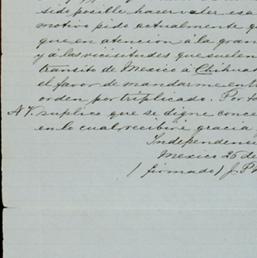 sido posible hacer valer esa
motivo pido actualmente q
que en atencion á la gran
y á las vicisitudes que suelen
transito de Mexico á Chihua
el favor de mandarme ent
orden por triplicado. Por to
A V. suplico que se digne conce
en lo cual recibiré gracia
Independenc
Mexico 25 de
(firmado) J. P